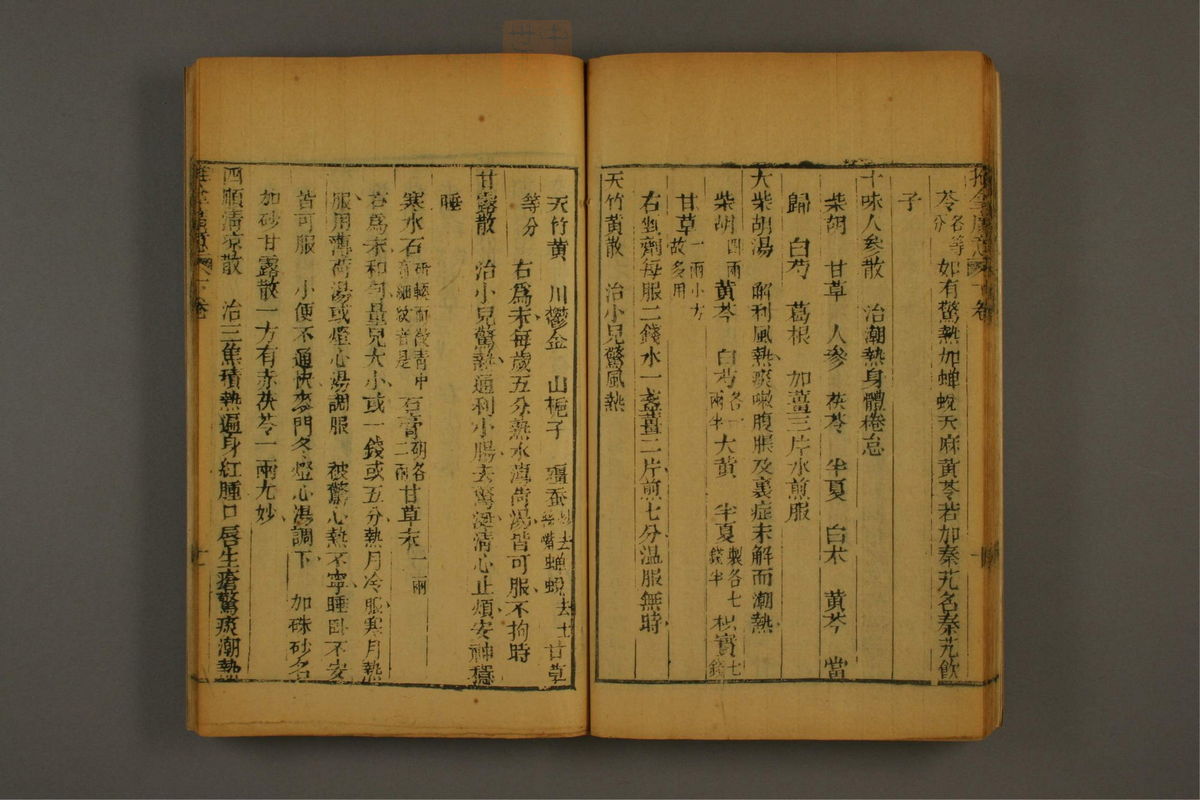 苓各等分如有驚熱加蟬蛻天麻黄芩若加秦艽名秦艽飲
子
十味人參散　治潮熱身體倦怠
柴胡　甘草　人參　茯苓　半夏　白朮　黄芩　當
歸　白芍　葛根　加薑三片水煎服
大柴胡湯　解利風熱痰嗽腹脹及裏症未解而潮熱
柴胡四兩　黄芩　白芍各一兩半　大黄　半夏製各七錢半　枳實七錢
甘草一兩小方故多用
右㕮劑每服二錢水一盞薑二片煎七分温服無時
天竹黄散　治小兒驚風熱
天竹黄　川鬱金　山梔子　殭蚕炒去嘴　蟬蛻去土　甘草
等分
右爲末每歲五分熱水薄荷湯皆可服不拘時
甘露散　治小兒驚熱通利小腸去驚涎清心止煩安神穩
睡
寒水石研軟而微青中有細紋者是　石膏研各二兩　甘草末一兩
右爲末和勻量兒大小或一錢或五分熱月冷服寒月熱
服用薄荷湯或燈心湯調服　被驚心熱不寧睡卧不安
皆可服　小便不通快麥門冬燈心湯調下　加硃砂名
加砂甘露散一方有赤茯苓一兩尤妙
四順清凉散　治三焦積熱遍身紅腫口唇生瘡驚痰潮熱